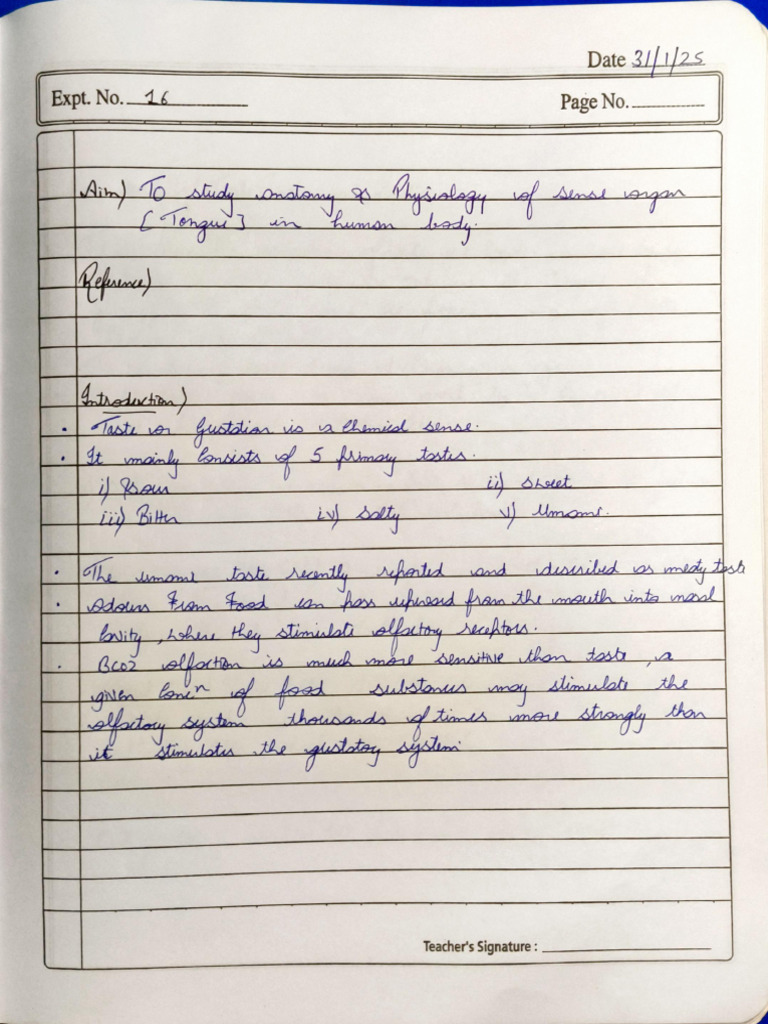 Date 31/1/25
Expt. No. 16 Page No.
Aim) To study anatomy & Physiology of sense organ
[Tongue] in human body.
Reference)
Introduction)
• Taste or Gustation is a Chemical sense.
• It mainly Consists of 5 primary tastes.
i) Sour ii) Sweet
iii) Bitter iv) Salty v) Umami.
• The umami taste recently reported and described as meaty taste
• odours From Food can pass upward from the mouth into nasal
Cavity, where they stimulate olfactory receptors.
• Bcoz olfaction is much more sensitive than taste, a
given Concn of food substances may stimulate the
olfactory system thousands of times more strongly than
it stimulates the gustatory system.
Teacher's Signature :